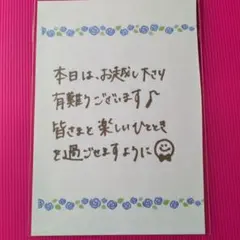 本日は、お越し下さり
有難うございます♪
皆さまと楽しいひととき
を過ごせますように